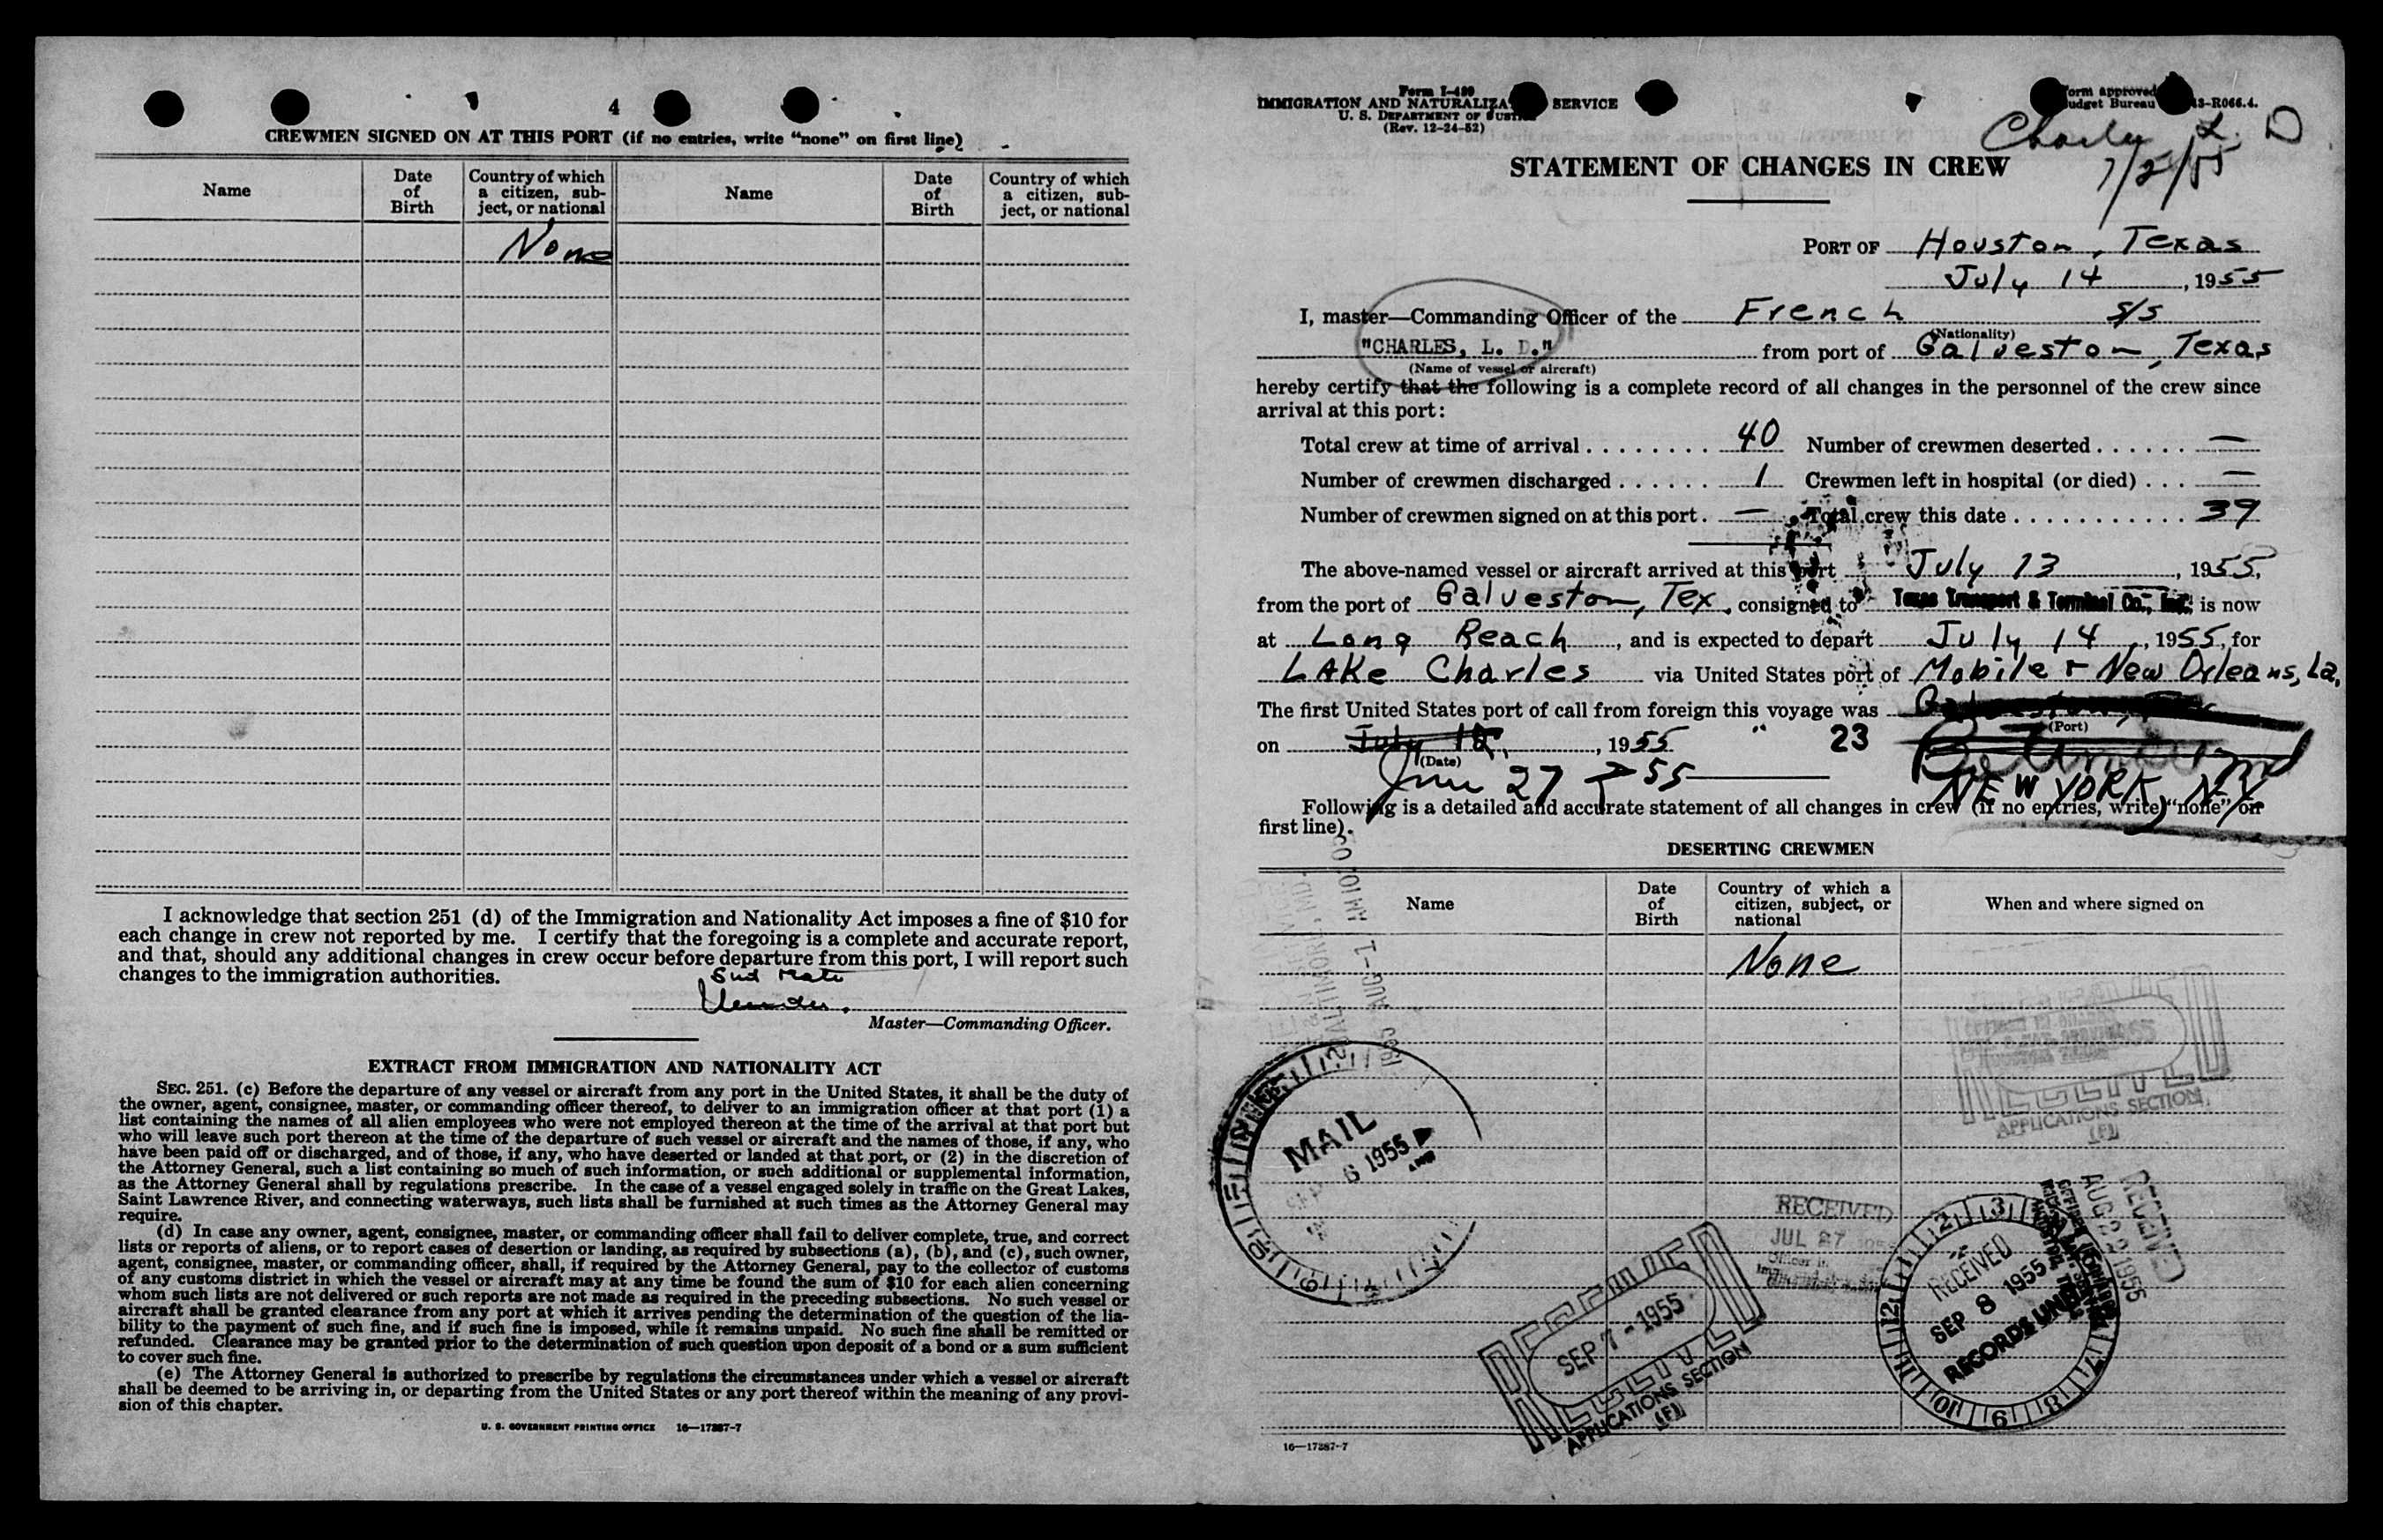 4
CREWMEN SIGNED ON AT THIS PORT (if no entries, write "none" on first line)
Name
Date of Birth
Country of which a citizen, subject, or national
Name
Date of Birth
Country of which a citizen, subject, or national
None
I acknowledge that section 251 (d) of the Immigration and Nationality Act imposes a fine of $10 for
each change in crew not reported by me. I certify that the foregoing is a complete and accurate report,
and that, should any additional changes in crew occur before departure from this port, I will report such
changes to the immigration authorities.
Master—Commanding Officer.
EXTRACT FROM IMMIGRATION AND NATIONALITY ACT
SEC. 251. (c) Before the departure of any vessel or aircraft from any port in the United States, it shall be the duty of
the owner, agent, consignee, master, or commanding officer thereof, to deliver to an immigration officer at that port (1) a
list containing the names of all alien employees who were not employed thereon at the time of the arrival at that port but
who will leave such port thereon at the time of the departure of such vessel or aircraft and the names of those, if any, who
have been paid off or discharged, and of those, if any, who have deserted or landed at that port, or (2) in the discretion of
the Attorney General, such a list containing so much of such information, or such additional or supplemental information,
as the Attorney General shall by regulations prescribe. In the case of a vessel engaged solely in traffic on the Great Lakes,
Saint Lawrence River, and connecting waterways, such lists shall be furnished at such times as the Attorney General may
require.
(d) In case any owner, agent, consignee, master, or commanding officer shall fail to deliver complete, true, and correct
lists or reports of aliens, or to report cases of desertion or landing, as required by subsections (a), (b), and (c), such owner,
agent, consignee, master, or commanding officer, shall, if required by the Attorney General, pay to the collector of customs
of any customs district in which the vessel or aircraft may at any time be found the sum of $10 for each alien concerning
whom such lists are not delivered or such reports are not made as required in the preceding subsections. No such vessel or
aircraft shall be granted clearance from any port at which it arrives pending the determination of the question of the lia-
bility to the payment of such fine, and if such fine is imposed, while it remains unpaid. No such fine shall be remitted or
refunded. Clearance may be granted prior to the determination of such question upon deposit of a bond or a sum sufficient
to cover such fine.
(e) The Attorney General is authorized to prescribe by regulations the circumstances under which a vessel or aircraft
shall be deemed to be arriving in, or departing from the United States or any port thereof within the meaning of any provi-
sion of this chapter.
U. S. GOVERNMENT PRINTING OFFICE 16—17387-7
Form I-489
IMMIGRATION AND NATURALIZA SERVICE
U. S. DEPARTMENT OF JUSTICE
(Rev. 12-24-52)
orm approved
udget Bureau 43-R066.4.
L. D
7/2/55
STATEMENT OF CHANGES IN CREW
PORT OF Houston, Texas
July 14, 1955
I, master—Commanding Officer of the French s/s
(Nationality)
"CHARLES, L. D." from port of Galveston, Texas
(Name of vessel or aircraft)
hereby certify that the following is a complete record of all changes in the personnel of the crew since
arrival at this port:
Total crew at time of arrival 40 Number of crewmen deserted —
Number of crewmen discharged 1 Crewmen left in hospital (or died) —
Number of crewmen signed on at this port. — Total crew this date 39
The above-named vessel or aircraft arrived at this port July 13, 1955,
from the port of Galveston, Tex, consigned to Texas Transport & Terminal Co., Inc. is now
at Long Reach, and is expected to depart July 14, 1955, for
LAKe Charles via United States port of Mobile + New Orleans, La.
The first United States port of call from foreign this voyage was Galveston, Tex
(Port)
on July 12, 1955 23
(Date)
June 27 55
NEW YORK, NY
Following is a detailed and accurate statement of all changes in crew (if no entries, write "none" on
first line).
DESERTING CREWMEN
Name
Date of Birth
Country of which a citizen, subject, or national
When and where signed on
None
1955 AUG -1 AM 10:
MAIL
SEP 6 1955
RECEIVED
APPLICATIONS SECTION
(F)
RECEIVED
JUL 27
RECEIVED
SEP 7 - 1955
RECEIVED
APPLICATIONS SECTION
(F)
RECEIVED
SEP 8 1955
RECORDS UNIT
RECEIVED
AUG 22 1955
16—17387-7